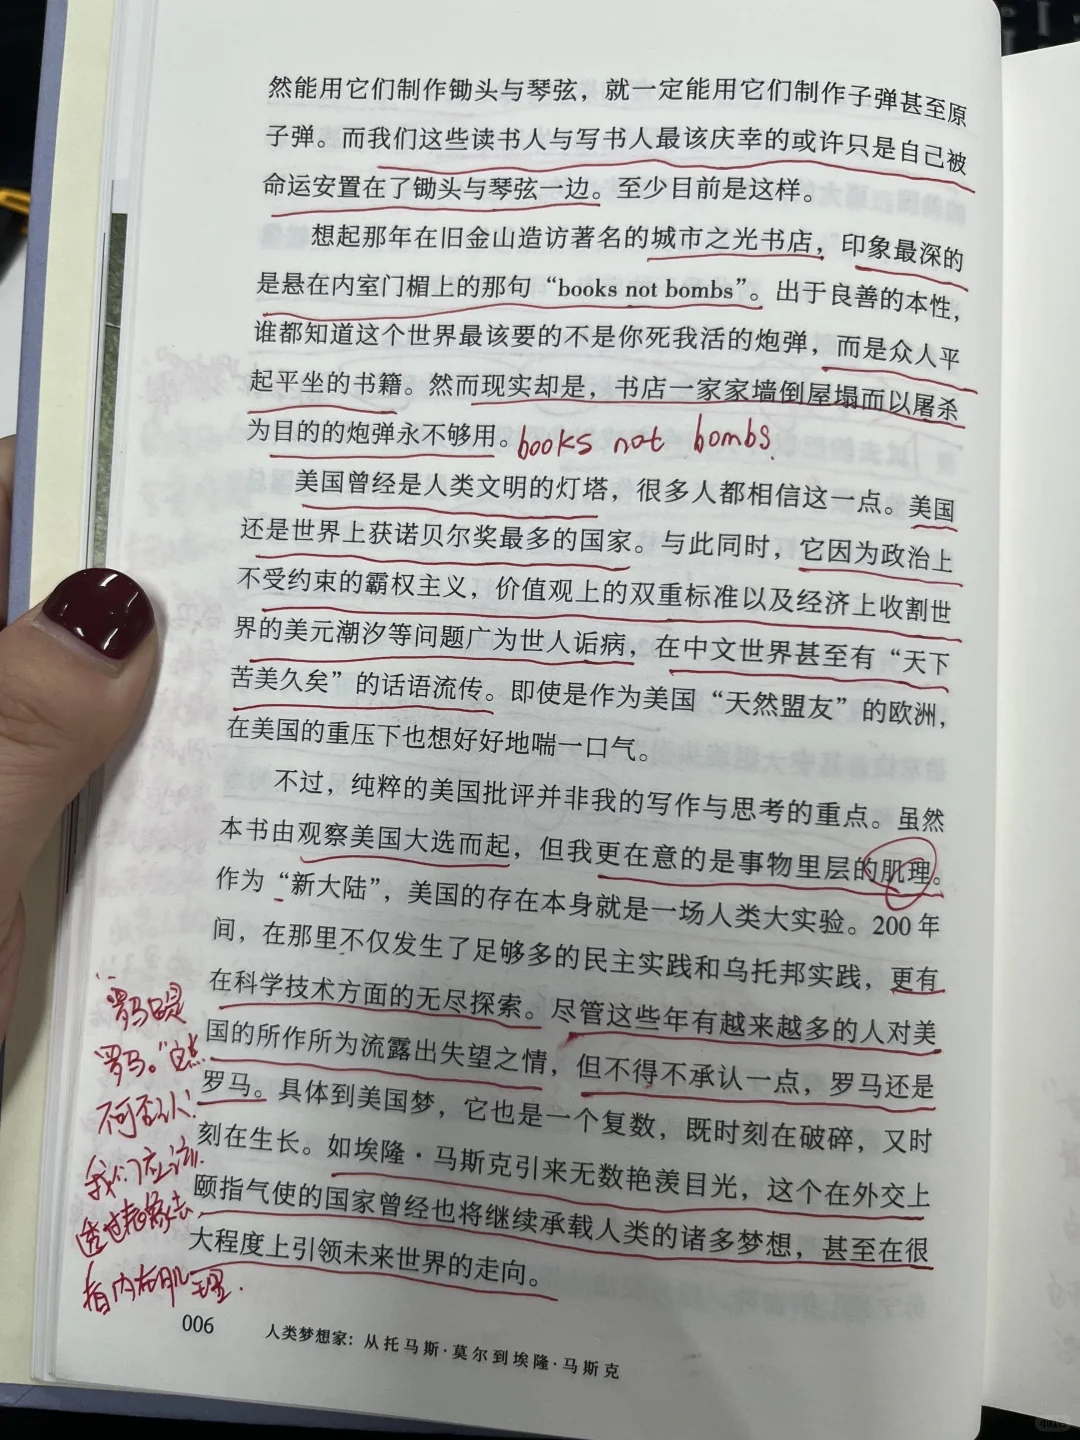 然能用它们制作锄头与琴弦，就一定能用它们制作子弹甚至原
子弹。而我们这些读书人与写书人最该庆幸的或许只是自己被
命运安置在了锄头与琴弦一边。至少目前是这样。
想起那年在旧金山造访著名的城市之光书店，印象最深的
是悬在内室门楣上的那句“books not bombs”。出于良善的本性，
谁都知道这个世界最该要的不是你死我活的炮弹，而是众人平
起平坐的书籍。然而现实却是，书店一家家墙倒屋塌而以屠杀
为目的的炮弹永不够用。
books not bombs.
美国曾经是人类文明的灯塔，很多人都相信这一点。美国
还是世界上获诺贝尔奖最多的国家。与此同时，它因为政治上
不受约束的霸权主义，价值观上的双重标准以及经济上收割世
界的美元潮汐等问题广为世人诟病，在中文世界甚至有“天下
苦美久矣”的话语流传。即使是作为美国“天然盟友”的欧洲，
在美国的重压下也想好好地喘一口气。
不过，纯粹的美国批评并非我的写作与思考的重点。虽然
本书由观察美国大选而起，但我更在意的是事物里层的肌理。
作为“新大陆”，美国的存在本身就是一场人类大实验。200年
间，在那里不仅发生了足够多的民主实践和乌托邦实践，更有
在科学技术方面的无尽探索。尽管这些年有越来越多的人对美
国的所作所为流露出失望之情，但不得不承认一点，罗马还是
罗马。具体到美国梦，它也是一个复数，既时刻在破碎，又时
刻在生长。如埃隆·马斯克引来无数艳羡目光，这个在外交上
颐指气使的国家曾经也将继续承载人类的诸多梦想，甚至在很
大程度上引领未来世界的走向。
“罗马还是
罗马。”
不可否认！
我们应该
透过表象去
看内在肌理.
006
人类梦想家：从托马斯·莫尔到埃隆·马斯克